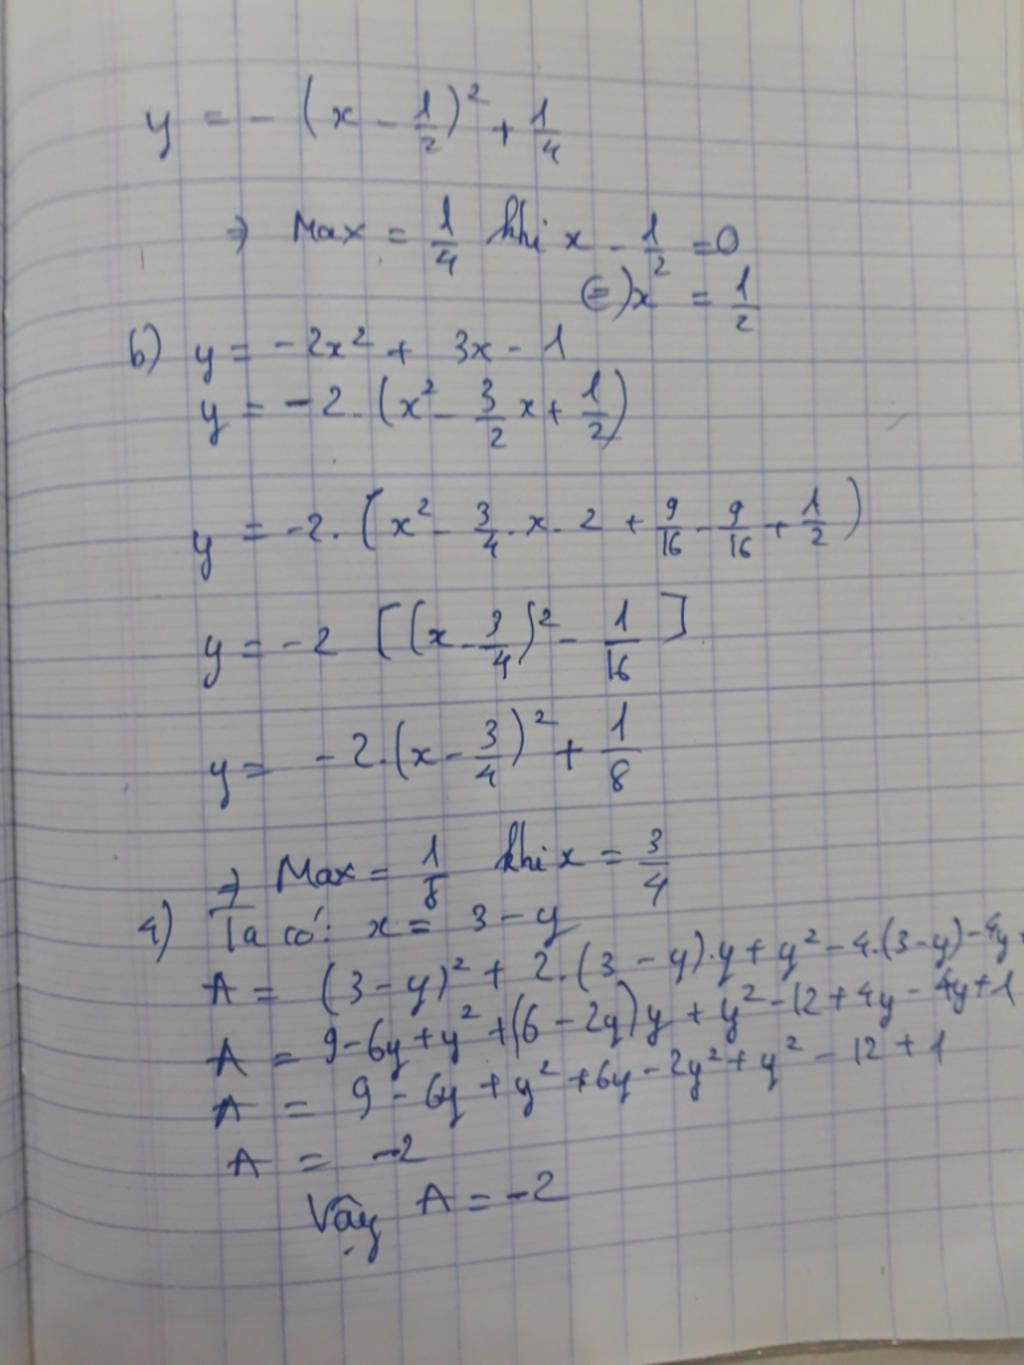 y = - (x - 1/2)² + 1/4
⇒ Max = 1/4 khi x - 1/2 = 0
⇔ x = 1/2
b) y = -2x² + 3x - 1
y = -2. (x² - 3/2 x + 1/2)
y = -2. (x² - 3/4 . x . 2 + 9/16 - 9/16 + 1/2)
y = -2 [(x - 3/4)² - 1/16]
y = -2.(x - 3/4)² + 1/8
⇒ Max = 1/8 khi x = 3/4
4) Ta có: x = 3 - y
A = (3 - y)² + 2.(3 - y).y + y² - 4.(3 - y) - 4y +
A = 9 - 6y + y² + (6 - 2y)y + y² - 12 + 4y - 4y + 1
A = 9 - 6y + y² + 6y - 2y² + y² - 12 + 1
A = -2
Vậy A = -2